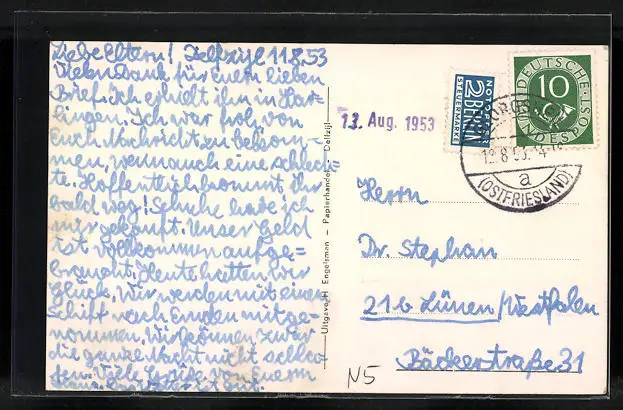 Liebe Eltern! Delfzijl 11.8.53
Vielen Dank für Euern lieben
Brief. Ich erhielt ihn in Har-
lingen. Ich war froh von
Euch Nachricht zu bekom-
men, wenn auch eine schlech-
te. Hoffentlich kommt Ihr
bald weg! Schuhe habe ich
mir gekauft. Unser Geld
ist vollkommen aufge-
braucht. Heute hatten wir
Glück. Wir werden mit einem
Schiff nach Emden mitge-
nommen. Wir können zwar
die ganze Nacht nicht schla-
fen. Viele Grüße von Euerm
Uitgave H. Engelsman - Papierhandel - Delfzijl
13. Aug. 1953
NOTOPFER
2 BERLIN
STEUERMARKE
DEUTSCHE POST
10
BUNDESPOST
13.8.53
a
(OSTFRIESLAND)
Herrn
Dr. Stephan
21b Lünen/Westfalen
Bäckerstraße 31
N5